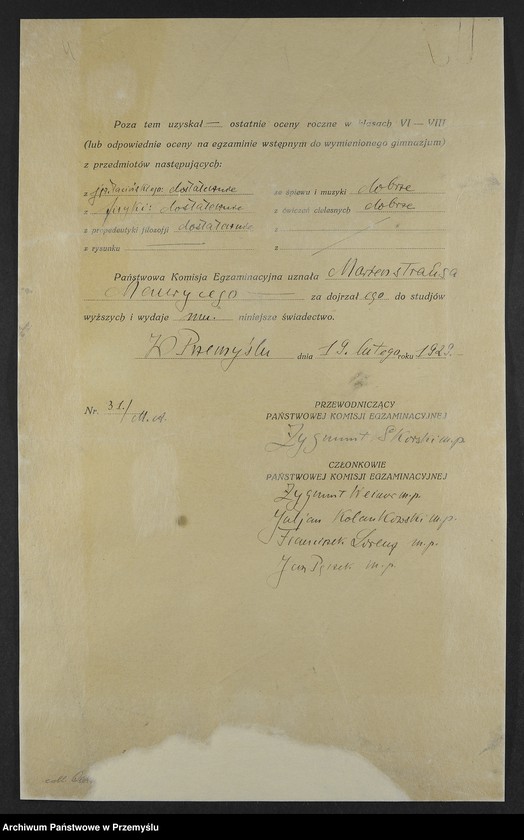 Poza tem uzyskał — ostatnie oceny roczne w klasach VI — VIII
(lub odpowiednie oceny na egzaminie wstępnym do wymienionego gimnazjum)
z przedmiotów następujących:
z dostatecznie
ze śpiewu i muzyki dobrze
z fizyki: dostatecznie
z ćwiczeń cielesnych dobrze
z propedeutyki filozofji dostatecznie
z
z rysunku —
z
Państwowa Komisja Egzaminacyjna uznała Marzenstraliga
Maurycego — za dojrzał ego do studjów
wyższych i wydaje mu. niniejsze świadectwo.
W Przemyślu dnia 19. lutego roku 1929.
Nr. 31/
PRZEWODNICZĄCY
PAŃSTWOWEJ KOMISJI EGZAMINACYJNEJ
Zygmunt Skorski m.p.
CZŁONKOWIE
PAŃSTWOWEJ KOMISJI EGZAMINACYJNEJ
Zygmunt m.p.
Juljan Kolankowski m.p.
Franciszek Loreng m.p.
Jan m.p.
Archiwum Państwowe w Przemyślu